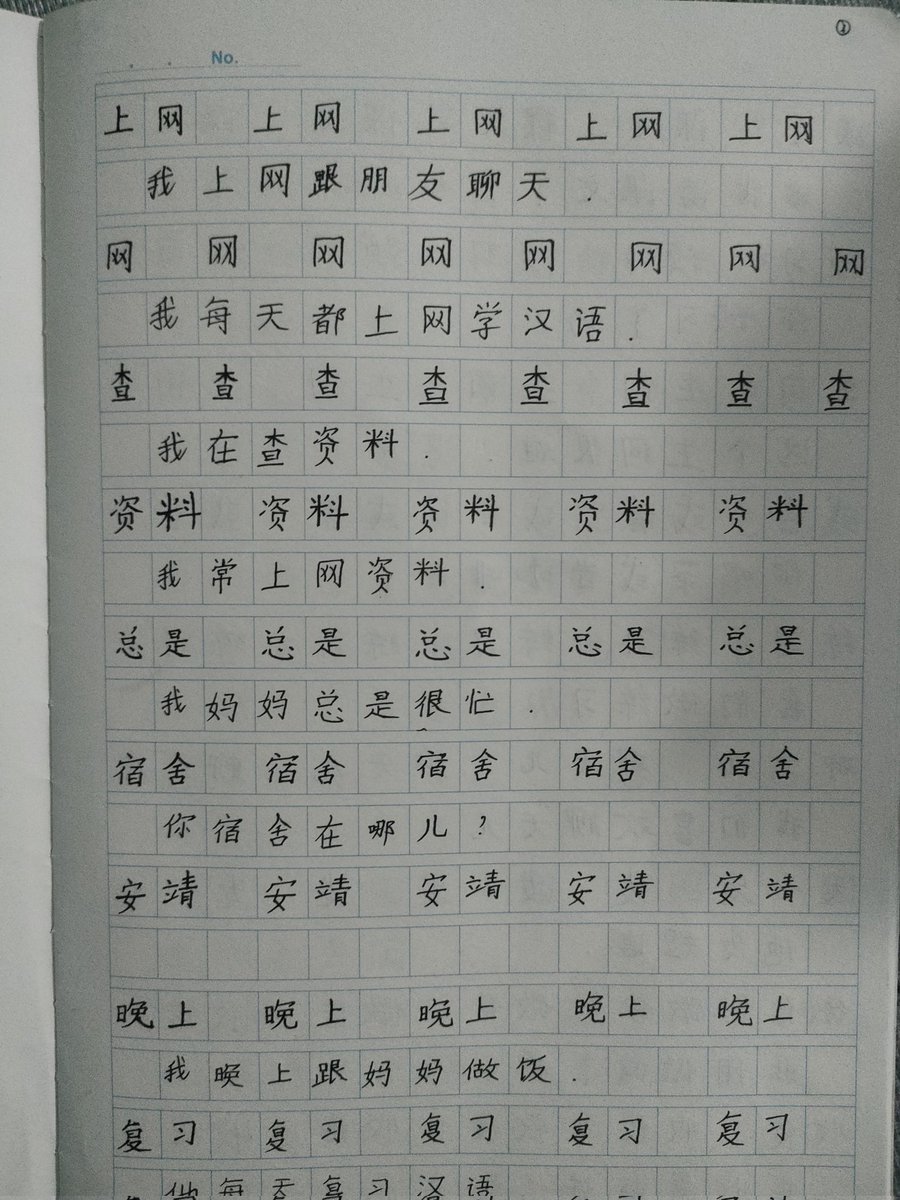 ①
No.
上网 上网 上网 上网 上网
我上网跟朋友聊天.
网 网 网 网 网 网 网 网
我每天都上网学汉语.
查 查 查 查 查 查 查 查
我在查资料.
资料 资料 资料 资料 资料
我常上网资料.
总是 总是 总是 总是 总是
我妈妈总是很忙.
宿舍 宿舍 宿舍 宿舍 宿舍
你宿舍在哪儿?
安靖 安靖 安靖 安靖 安靖
晚上 晚上 晚上 晚上 晚上
我晚上跟妈妈做饭.
复习 复习 复习 复习 复习
他每天复习汉语